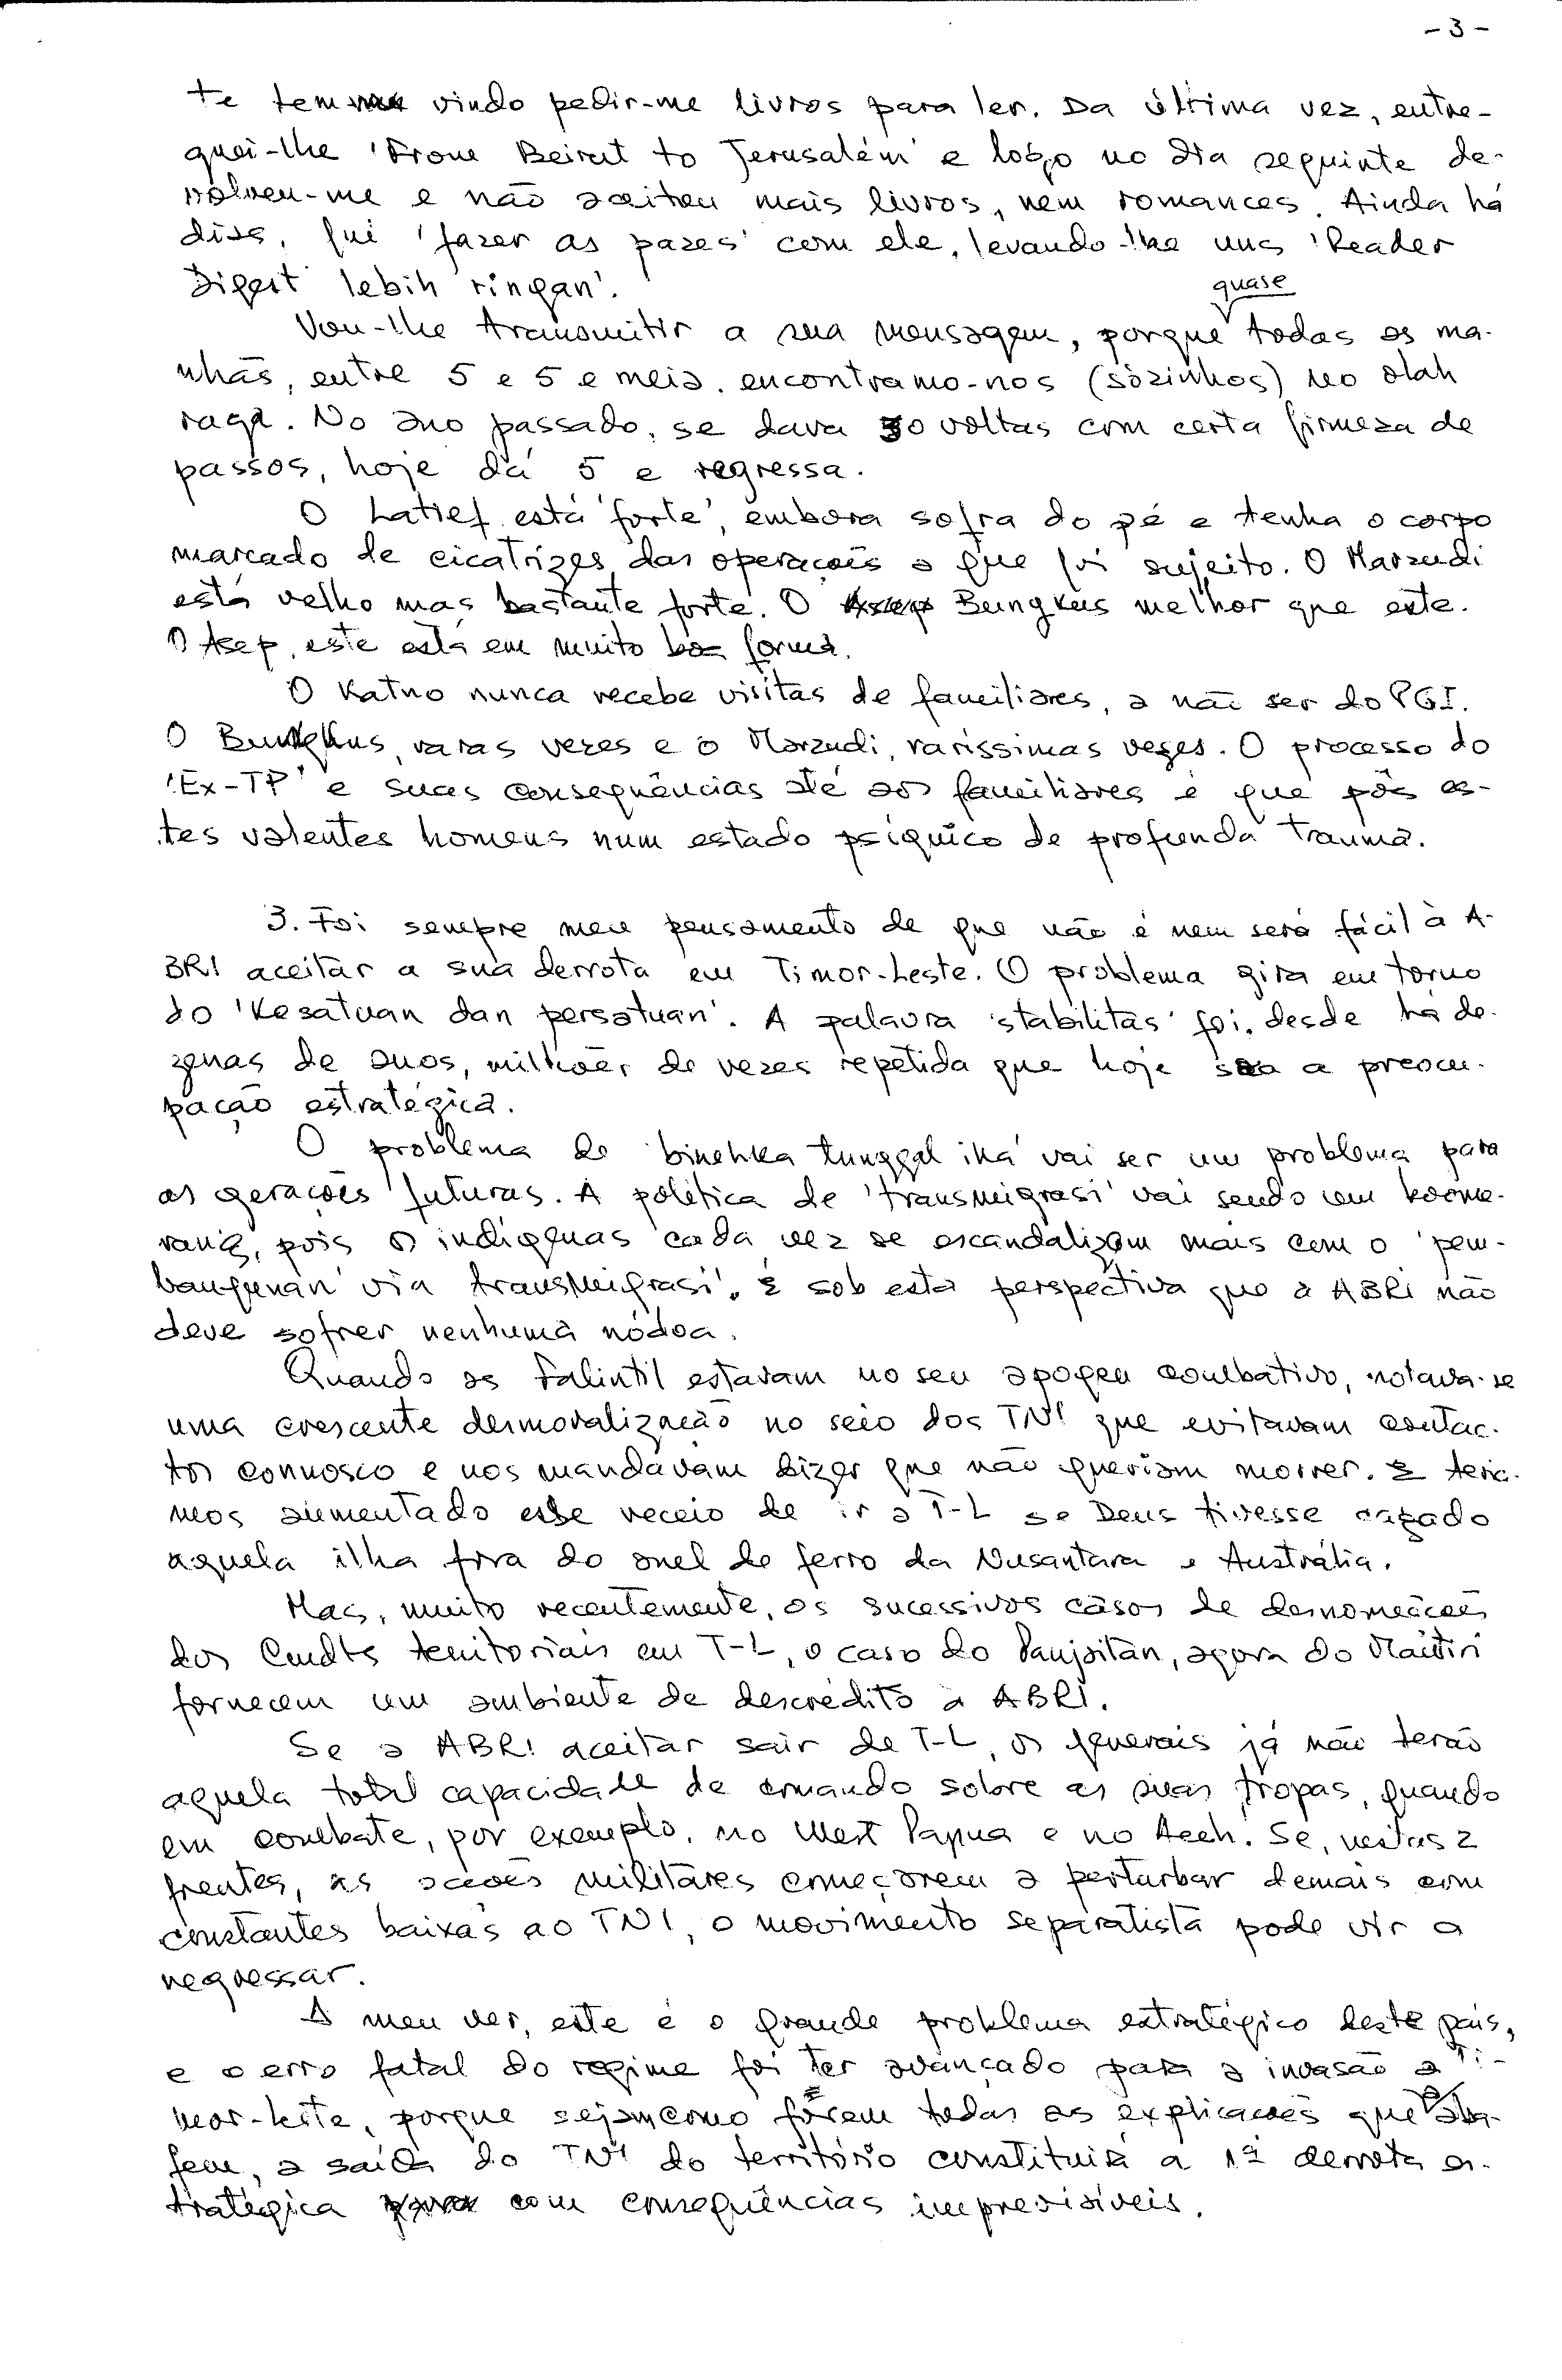 - 3 -
te tem vindo pedir-me livros para ler. Da última vez, entre-
guei-lhe 'From Beirut to Jerusalém' e logo no dia seguinte de-
volveu-me e não aceitou mais livros, nem romances. Ainda há
dias, fui 'fazer as pazes' com ele, levando-lhe uns 'Reader
Digest lebih ringan'.
quase
Vou-lhe transmitir a sua mensagem, porque todas as ma-
nhãs, entre 5 e 5 e meia, encontramo-nos (sòzinhos) no olah
raga. No ano passado, se dava 30 voltas com certa firmeza de
passos, hoje dá 5 e regressa.
O Latief está 'forte', embora sofra do pé e tenha o corpo
marcado de cicatrizes das operaçoẽs a que foi sujeito. O Marzudi
está velho mas bastante forte. O Bungkus melhor que este.
O Asep, este está em muito boa forma.
O Katno nunca recebe visitas de familiares, a não ser do PGI.
O Bungkus, raras vezes e o Marzudi, raríssimas vezes. O processo do
'Ex-TP' e suas consequências até aos familiares é que pôs es-
tes valentes homens num estado psíquico de profunda trauma.
3. Foi sempre meu pensamento de que não é nem será fácil à A-
BRI aceitar a sua derrota em Timor-Leste. O problema gira em torno
do 'Kesatuan dan persatuan'. A palavra 'stabilitas' foi, desde há de-
zenas de anos, milhões de vezes repetida que hoje sea a preocu-
pação estratégica.
O problema do 'binehka tunggal ika' vai ser um problema para
as gerações futuras. A política de 'transmigrasi' vai sendo um boome-
rang, pois os indígenas cada vez se escandalizam mais com o 'pem-
bangunan via transmigrasi'. É sob esta perspectiva que a ABRI não
deve sofrer nenhuma nódoa.
Quando as Falintil estavam no seu apogeu combativo, notava-se
uma crescente desmoralização no seio dos TNI que evitavam contac-
tos connosco e nos mandavam dizer que não queriam morrer. E tería-
mos aumentado esse receio de ir a T-L se Deus tivesse cagado
aquela ilha fora do anel de ferro da Nusantara e Austrália.
Mas, muito recentemente, os sucessivos casos de desnomeações
dos Cmdts territoriais em T-L, o caso do Panjaitan, agora do
fornecem um ambiente de descrédito à ABRI.
Se a ABRI aceitar sair de T-L, os generais já não terão
aquela total capacidade de comando sobre as suas tropas, quando
em combate, por exemplo, no West Papua e no Aceh. Se, nestas 2
frentes, as acções militares começarem a perturbar demais com
constantes baixas ao TNI, o movimento separatista pode vir a
regressar.
A meu ver, este é o grande problema estratégico deste país,
e o erro fatal do regime foi ter avançado para a invasão a Ti-
mor-Leste, porque sejam como forem todas as explicações que
a saída do TNI do território constituirá a 1ª derrota es-
tratégica com consequências imprevisíveis.